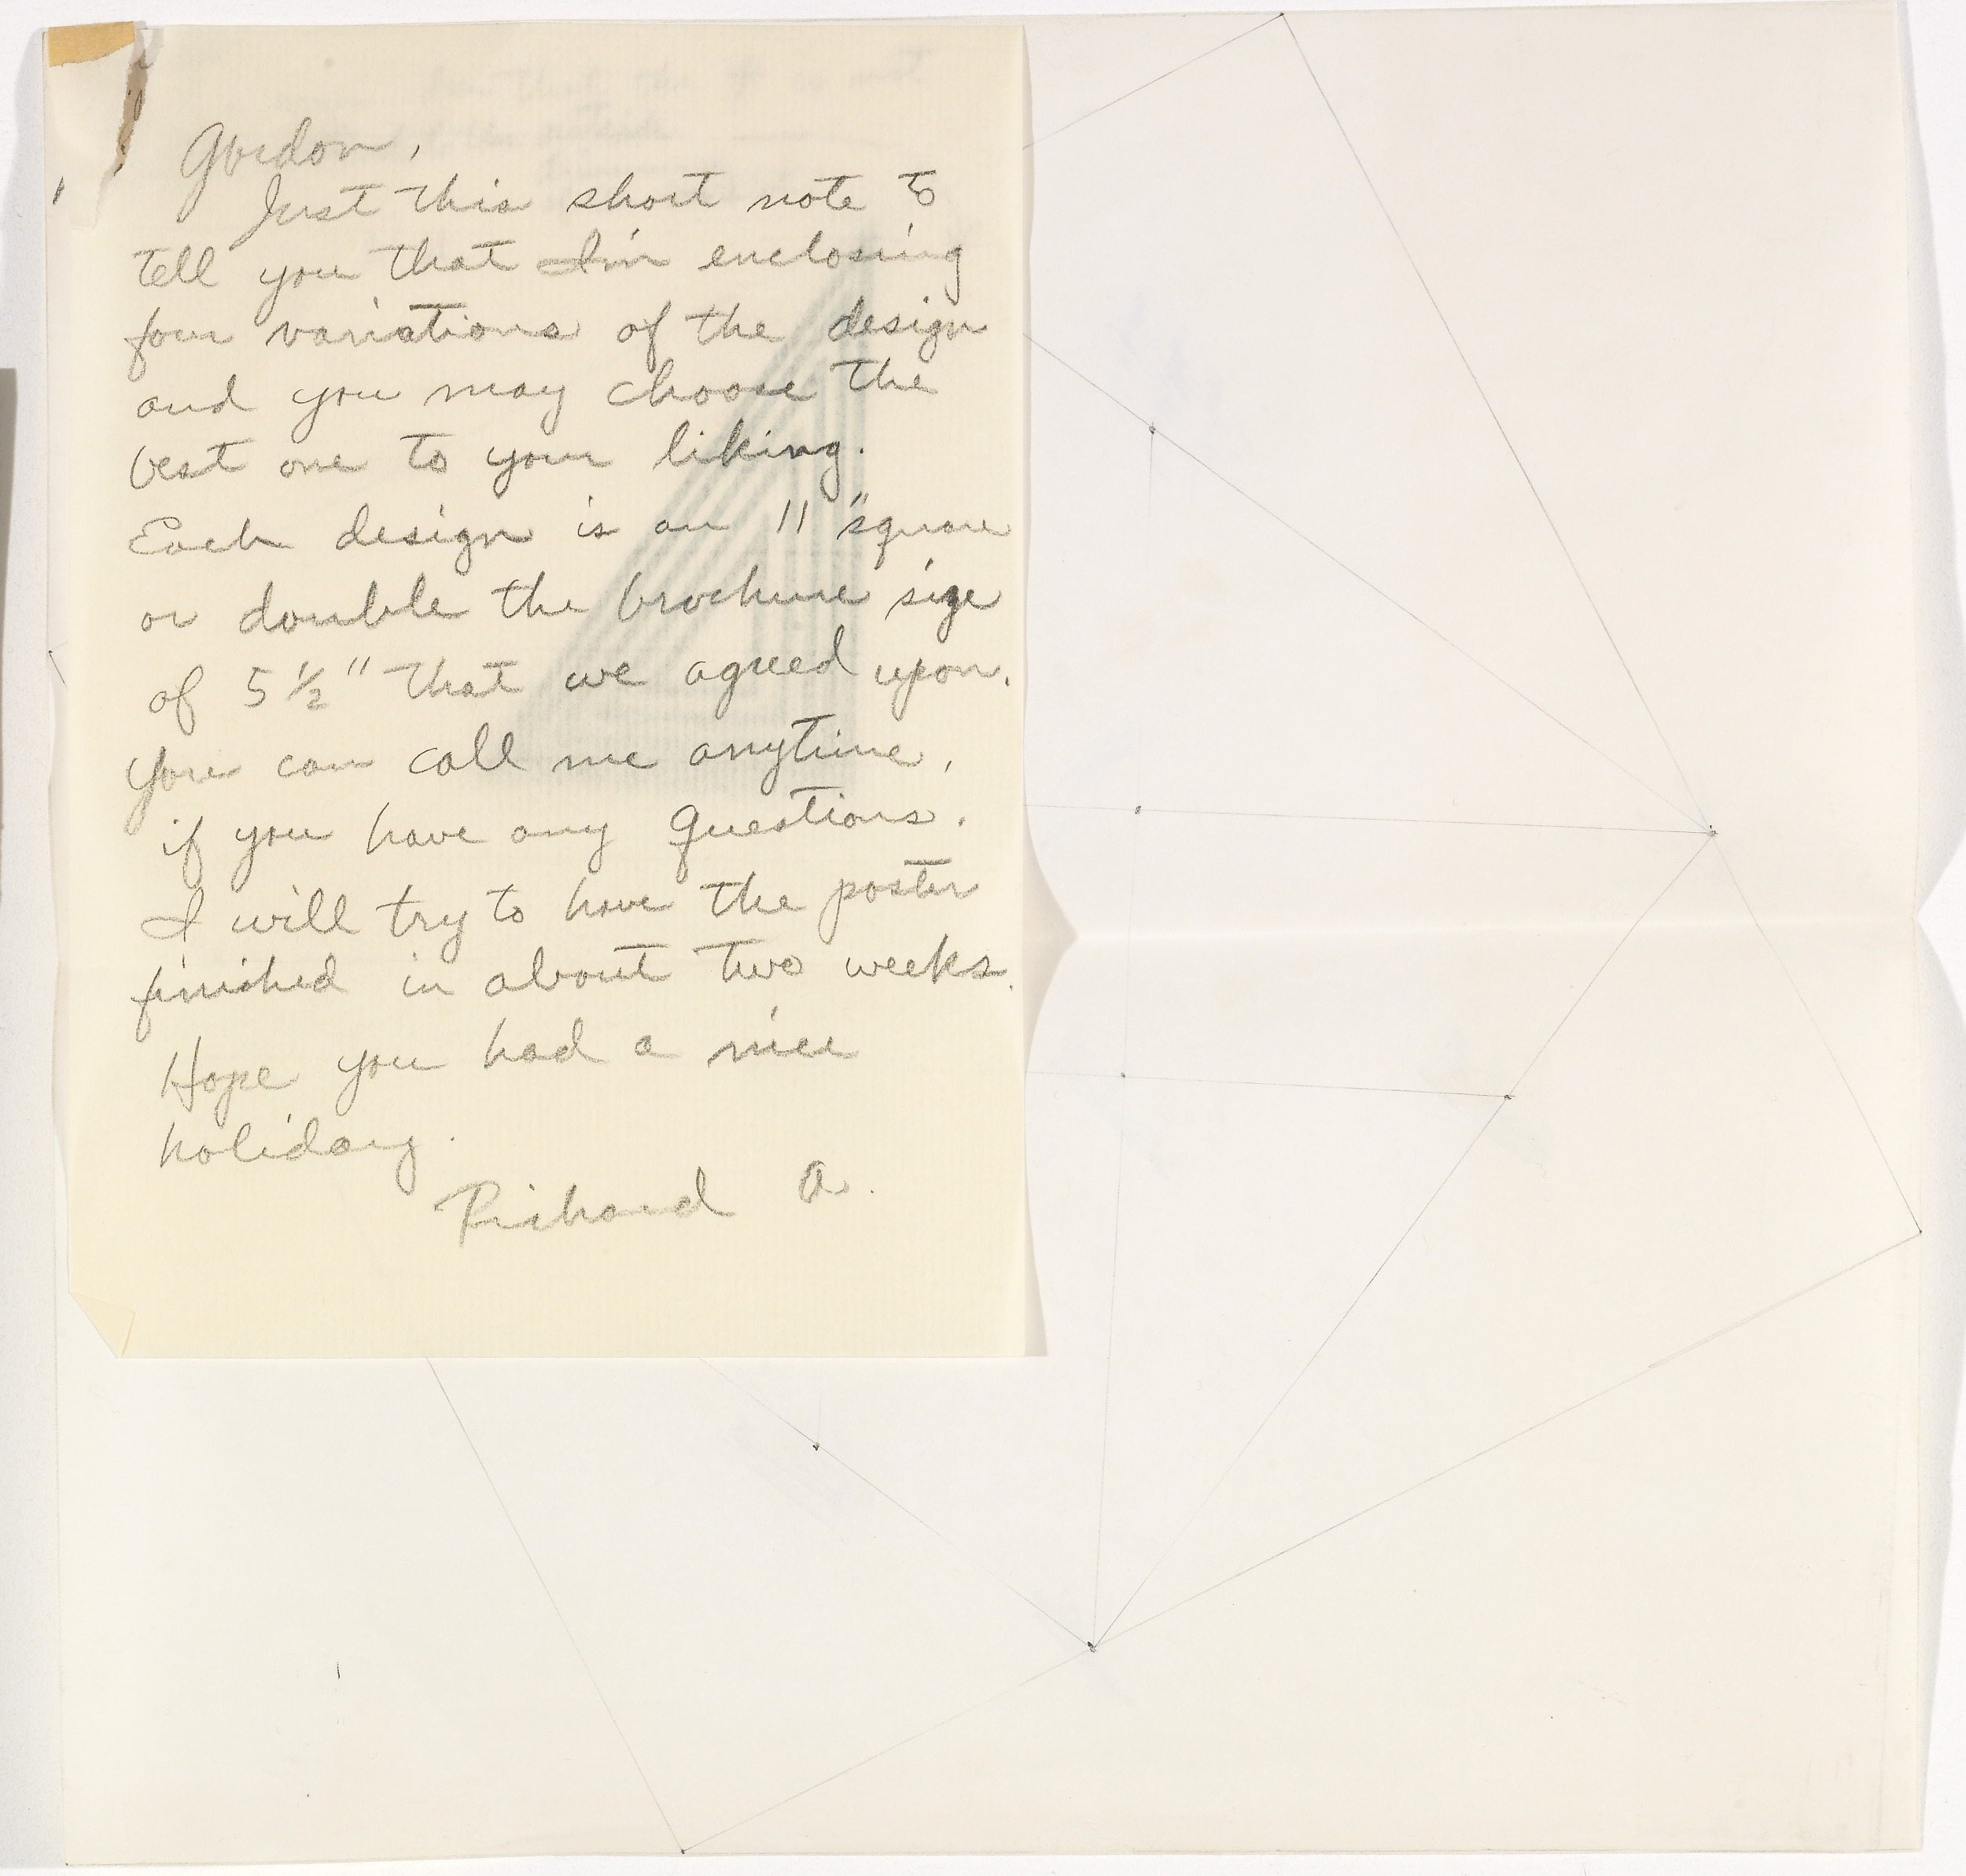 Gordon,
Just this short note to
tell you that I'm enclosing
four variations of the design
and you may choose the
best one to your liking.
Each design is an 11" square
or double the brochure size
of 5 1/2" that we agreed upon.
You can call me anytime,
if you have any questions.
I will try to have the poster
finished in about two weeks.
Hope you had a nice
holiday.
Richard A.